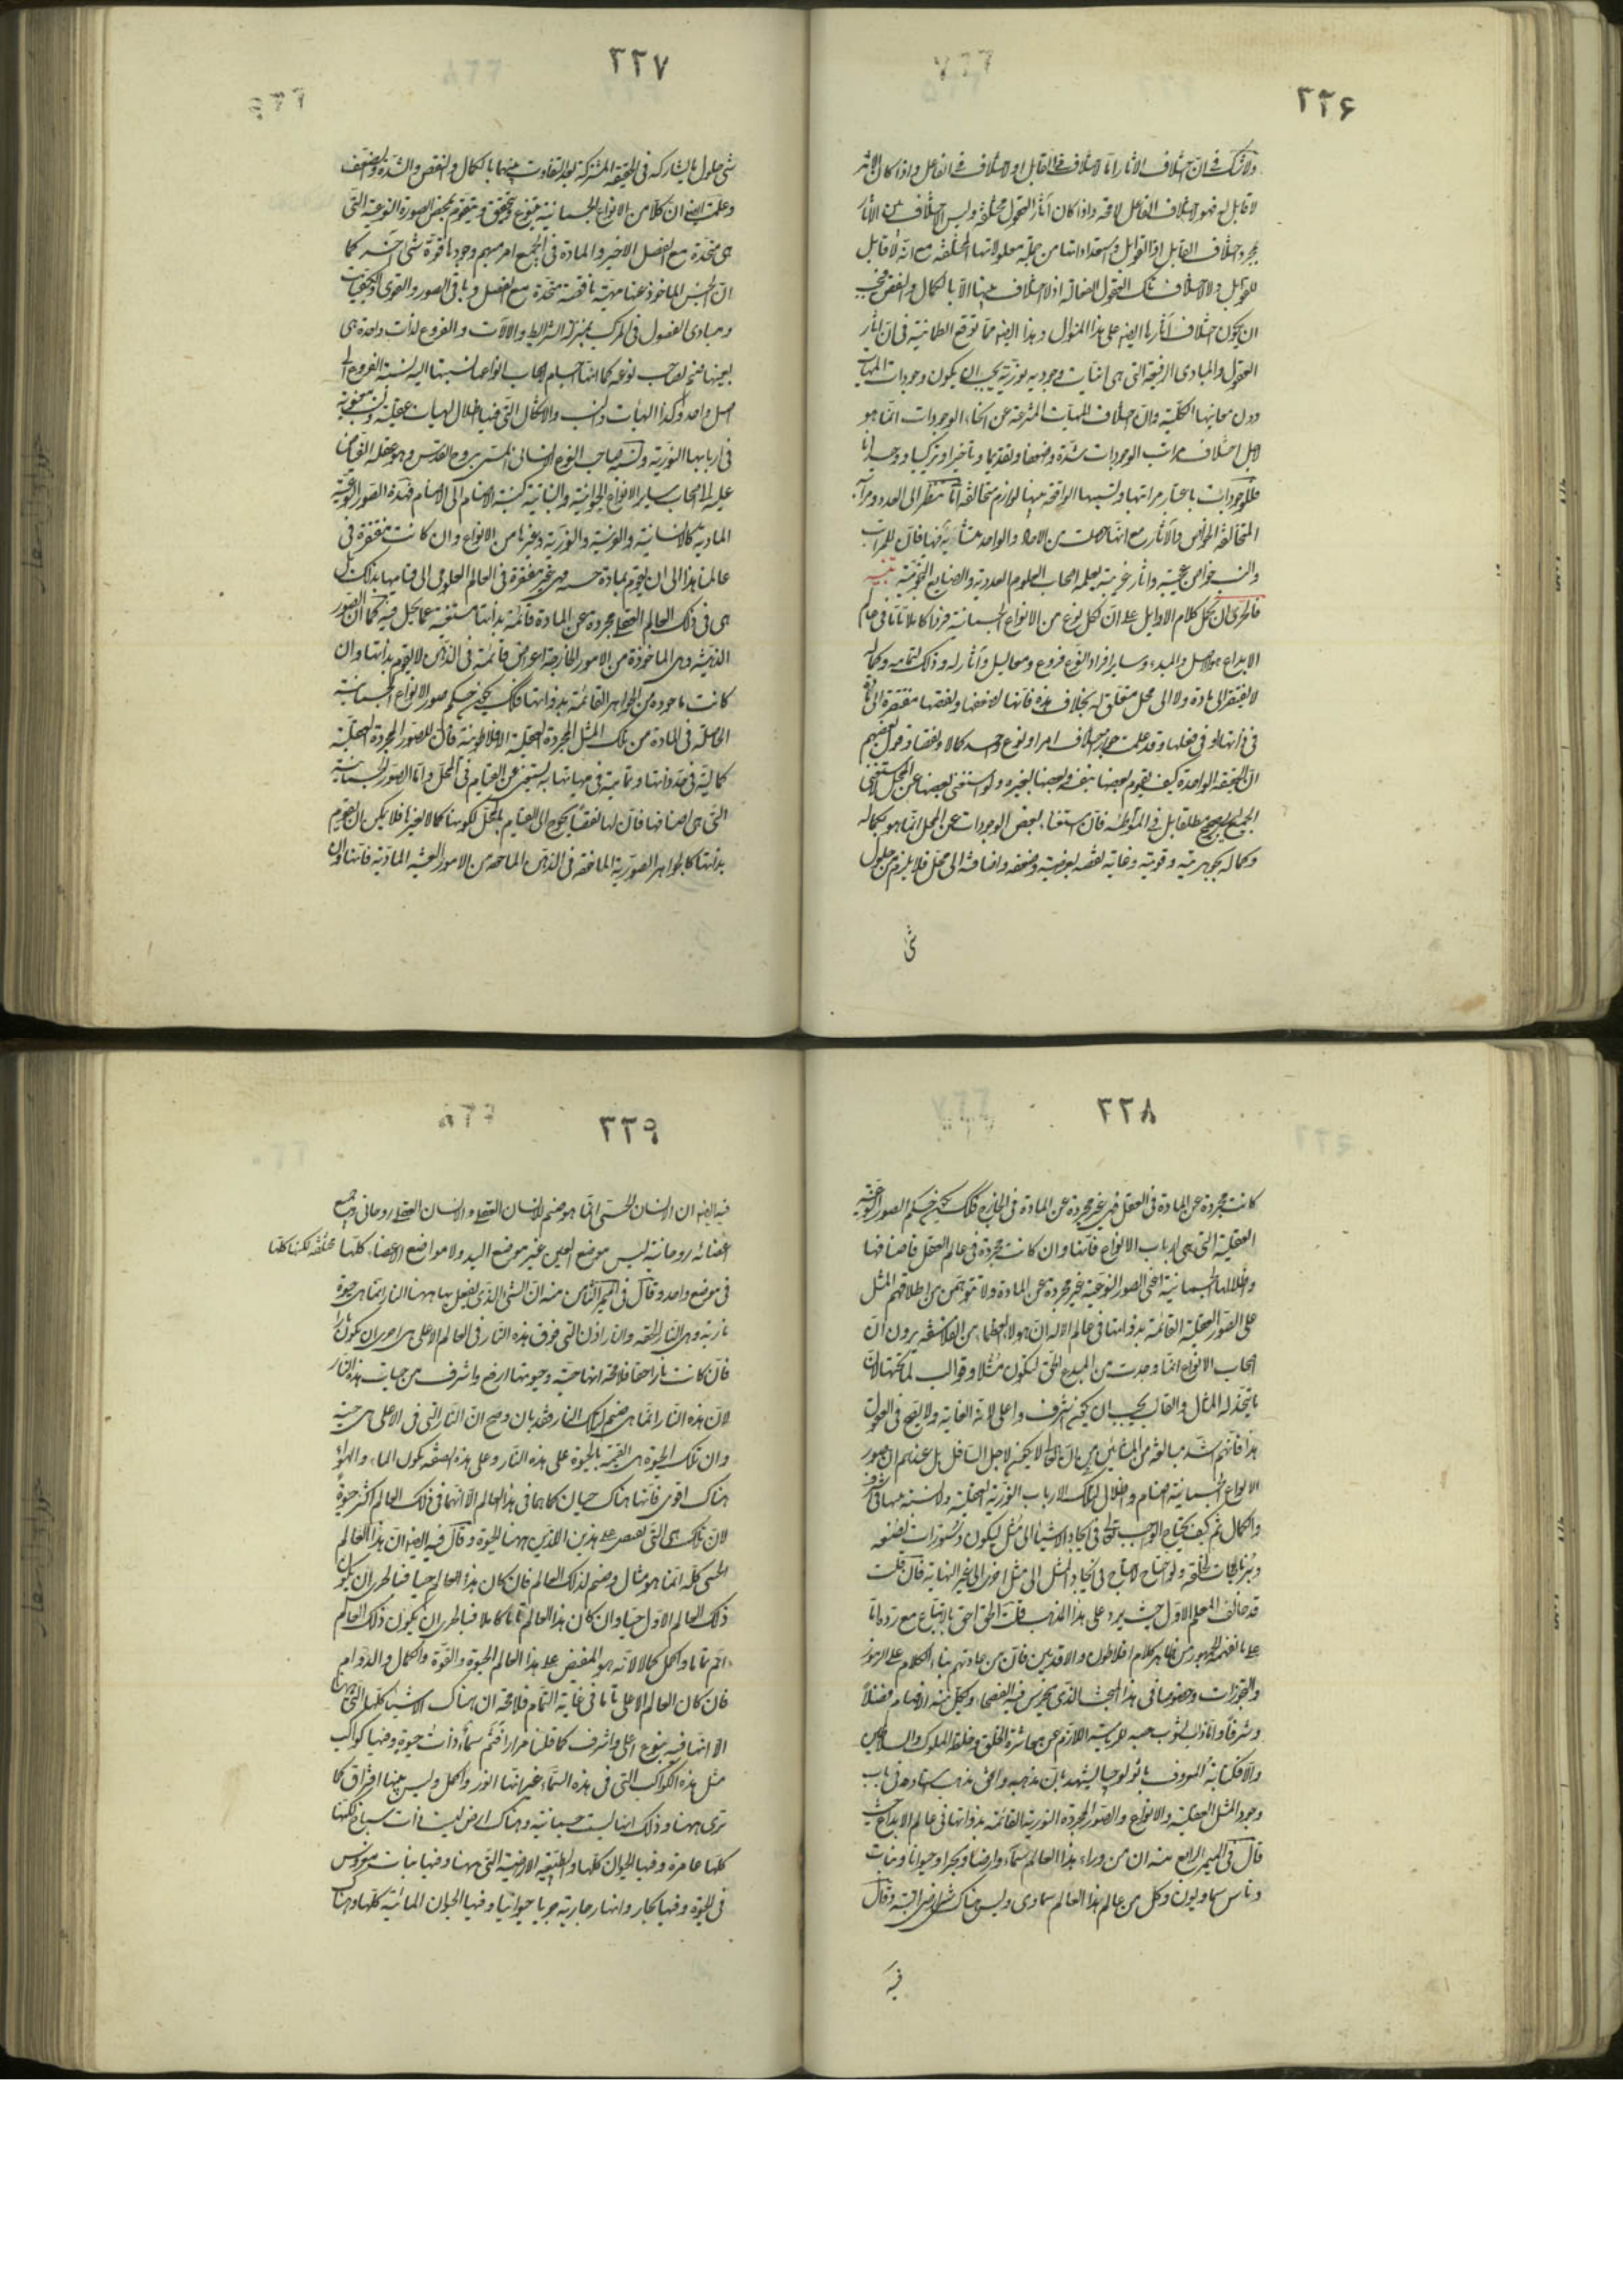 ٢٢۶
ولا شك فى ان اختلاف الاثار اما لاختلاف فى القابل او لاختلاف فى الفاعل واذا كان الاثر
لا قابل له فهو لاختلاف الفاعل لا محة واذا كان آثار العقول مختلفة وليس اختلاف من الاثار
بمجرد اختلاف القابل اذ القوابل واستعداداتها من جملة معلولاتها المختلفة مع انه لا قابل
للقوابل ولا لاختلاف تلك العقول الفعالة اذ لا اختلاف بينها الا بالكمال والنقص فيجب
ان يكون اختلاف آثارها ايضه على هذا المنوال وهذا ايضه مما توقع الطمانية فى ان آثار
العقول والمبادى الرفيعة التى هى انيات وجوديه نورية يجب ان يكون وجودات المهيات
دون معانيها الكلية وان اختلاف المهيات المنتزعة عن انحاء الوجودات انما هو
لاجل اختلاف مراتب الوجودات شدة وضعفا وتقديما وتاخيرا وتركيبا ووحدانا
فللوجودات باعتبار مراتبها ونسبها الواقعة بينها لوازم متخالفة اما تنظر الى العدد ومراتبه
المتخالفة الخواص والآثار مع انها حصلت من الاحاد والواحد متشابه فيها فان للمراتب
والنسب خواص عجيبة وآثار غريبة يعلمه اصحاب العلوم العددية والصنايع النجومية تنبيه
فالحرى ان يحمل كلام الاوايل على ان لكل نوع من الانواع الجسمانية فردا كاملا تاما فى عالم
الابداع هو الاصل والمبدء وساير افراد النوع فروع ومعاليل وآثار له وذلك لتماميه وكماله
لا يفتقر الى مادة ولا الى محل متعلق له بخلاف هذه فانها لضعفها ونقصها مفتقرة الى مادة
فى ذاتها او فى فعلها وقد علمت جواز اختلاف افراد نوع واحد كمالا ونقصا وقول بعضهم
ان الحقيقة الواحدة كيف يقوم بعضها بنفسه وبعضها بغيره ولو استغنى بعضها عن المحل لاستغنى
الجميع ليس بصحيح مطلقا بل فى المتواطئة فان استغناء بعض الوجودات عن المحل انما هو بكماله
وكماله بجوهريته وقوته وغاية نقصه بعرضيته وضعفه واضافته الى محل فلا يلزم من حلول
شى
٢٢٧
شى حلول ما يشاركه فى الحقيقة المشتركة بعد التفاوت بينهما بالكمال والنقص والشدة والضعف
وعلمت ايضه ان كلا من الانواع الجسمانية يتنوع ويتحقق ويتقوم بمحض الصورة النوعية التى
هى متحدة مع الفصل الاخير والمادة فى الجميع امر مبهم وجودها قوة شى آخر كما
ان الجنس الماخوذ عنها مهية ناقصة متحدة مع الفصل وباقى الصور والقوى والكيفيات
ومبادى الفصول فى المركب بمنزلة الشرايط والآلات والفروع لذات واحدة هى
بعينها صنم لصاحب نوعه كما انها اجسام اصحاب انواعها نسبتها اليه نسبة الفروع الى
اصل واحد وكذا الهيئات والنسب والاشكال التى فيها اظلال لهيات عقلية ونسب معنوية
فى اربابها النورية ونسبة صاحب النوع الانسانى المسمى بروح القدس وهو عقله الفياض
عليه الى اصحاب ساير الانواع الحيوانية والنباتية كنسبة الاصنام الى الاصنام فهذه الصور النوعية
المادية كالانسانية والفرسية والثورية وغيرها من الانواع وان كانت مفتقرة فى
عالمنا هذا الى ان يقوم بمادة حسية فهى غير مفتقرة فى العالم العلوى الى قيامها بذلك بل
هى فى ذلك العالم العقلى مجردة عن المادة قائمة بذاتها مستغنية عما يحل فيه كما ان الصور
الذهنية وهى الماخوذة من الامور الخارجة اعراض قائمة فى الذهن لا يقوم بذاتها وان
كانت ماخوذه من الجواهر القائمة بذواتها فكذلك يكون حكم صور الانواع الجسمانية
الحاصلة فى المادة من تلك المثل المجردة العقلية الافلاطونية فان للصور المجردة العقلية
كمالية فى حد ذاتها وتمامية فى مهياتها به يستغنى عن القيام فى المحل واما الصور الجسمانية
التى هى اصنامها فان لها نقصا يحوج الى القيام بالمحل لكونها كمالا لغيرها فلا يمكن ان يقوم
بذاتها كالجواهر الصورية الماخوذة فى الذهن الماخوذه من الامور العينية المادية فانها وان
٢٢٨
كانت مجردة عن المادة فى العقل فهى غير مجردة عن المادة فى الخارج فكذلك يكون حكم الصور النوعية
العقلية التى هى ارباب الانواع فانها وان كانت مجردة فى عالم العقل فاصنامها
واظلالها الجسمانية اعنى الصور النوعية غير مجردة عن المادة ولا تتوهمن من اطلاقهم المثل
على الصور العقلية القائمة بذواتها فى عالم الاله ان هولاء العظماء من الفلاسفة يرون ان
اصحاب الانواع انما وجدت من المبدع الحق ليكون مثلا وقوالب لما تحتها لان
ما يتخذ له المثال والقالب يجب ان يكون اشرف واعلى لانه الغاية ولا يصح فى العقول
هذا فانهم اشد مبالغة من المشائين من ان العالى لا يكون لاجل السافل بل عندهم ان صور
الانواع الجسمانية اصنام واظلال لتلك الارباب النورية العقلية ولا نسبة بينهما فى الشرف
والكمال ثم كيف يحتاج الواجب تعالى فى ايجاد الاشياء الى مثل ليكون دستورات لصنعه
وبرنامجات لخلقه ولو احتاج لاحتاج فى ايجاد المثل الى مثل اخرى الى غير النهاية فان قلت
قد خالف المعلم الاول حيث يرد على هذا المذهب قلت الحق احق بالاتباع مع رده اما
على ما يفهمه الجمهور من ظاهر كلام افلاطون والاقدمين فان من عادتهم بناء الكلام على الرموز
والتجوزات وخصوصا فى هذا المبحث الذى يخرس فيه الفصحاء ويكل منه الافهام فضلا
وشرفا واما لشوب حبه للرياسة اللازم عن معاشرة الخلق وخلطة الملوك والسلاطين
والا فكتابه المعروف باثولوجيا يشهد بان مذهبه وافق مذهب استاده فى باب
وجود المثل العقلية والانواع والصور المجردة النورية القائمة بذواتها فى عالم الابداع حيث
قال فى الميمر الرابع منه ان من وراء هذا العالم سماء وارضا وبحرا وحيوانا ونبات
وناس سماويون وكل من عالم هذا العالم سماوى وليس هناك شى ارضى البتة وقال
فيه
٢٢٩
فيه ايضه ان الانسان الحسى انما هو صنم للانسان العقلى والانسان العقلى روحانى وجميع
اعضائه روحانية ليس موضع العين غير موضع اليد ولا مواضع الاعضاء كلها مختلفة لكنها كلها
فى موضع واحد وقال فى الميمر الثامن منه ان الشى الذى يفعل بها ههنا النار انما هى حيوة
نارية وهى النار الحقة والنار اذن التى فوق هذه النار فى العالم الاعلى هى احرى ان يكون نارا
فان كانت نارا حقا فلا محة انها حية وحيوتها ارفع واشرف من حيات هذه النار
لان هذه النار انما هى صنم لتلك النار فقد بان وصح ان النار التى فى الاعلى هى حية
وان تلك الحيوة هى القيمة بالحيوة على هذه النار وعلى هذه الصفة يكون الماء والهواء
هناك اقوى فانهما هناك حيان كما هما فى هذا العالم الا انهما فى ذلك العالم اكثر حيوة
لان تلك هى التى تفيض على هذين اللذين ههنا الحيوة وقال فيه ايضه ان هذا العالم
الحسى كله انما هو مثال وصنم لذلك العالم فان كان هذا العالم حيا فبالحرى ان يكون
ذلك العالم الاول حيا وان كان هذا العالم تاما كاملا فبالحرى ان يكون ذلك العالم
اتم تماما واكمل كمالا لانه هو المفيض على هذا العالم الحيوة والقوة والكمال والدوام
فان كان العالم الاعلى تاما فى غاية التمام فلا محة ان هناك الاشياء كلها التى ههنا
الا انها فيه بنوع اعلى واشرف كما قلنا مرارا فثم سماء ذات حيوة وفيها كواكب
مثل هذه الكواكب التى فى هذه السماء غير انها انور واكمل وليس بينها افتراق كما
ترى ههنا وذلك انها ليست جسمانية وهناك ارض ليست ذات سباخ لكنها
كلها عامرة وفيها الحيوان كلها والطبيعة الارضية التى ههنا وفيها نبات مغروس
فى الحيوة وفيها بحار وانهار جارية جريا حيوانيا وفيها الحيوان المائية كلها وهناك